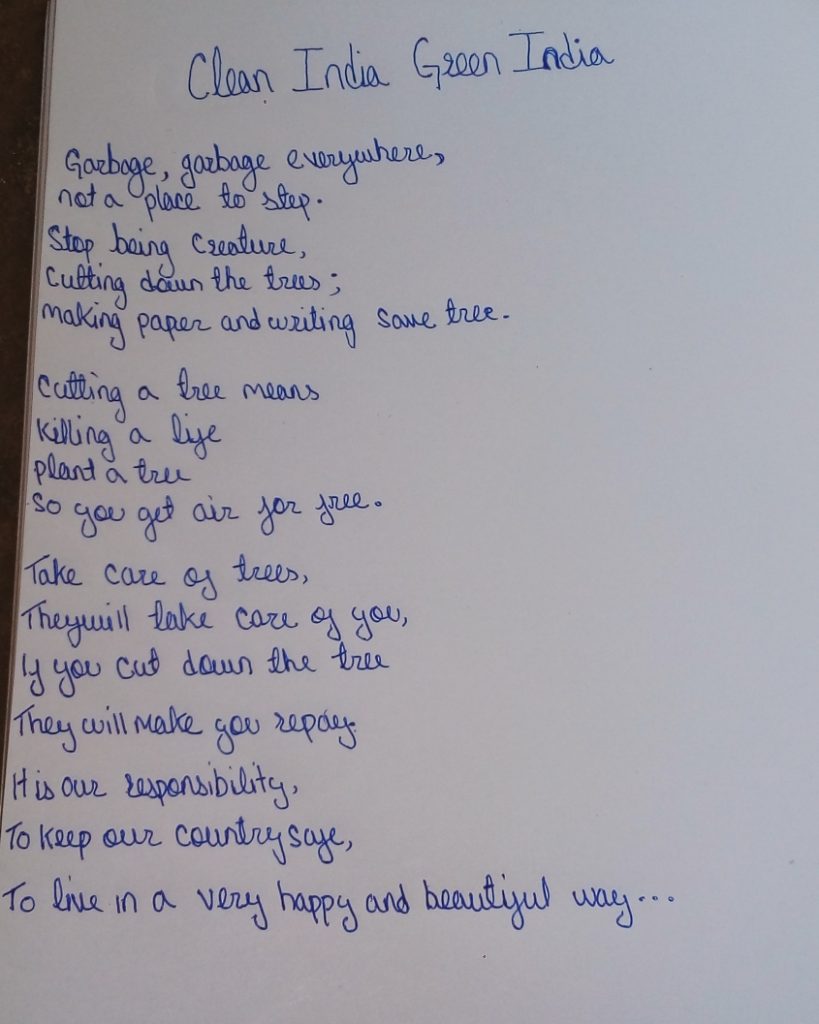 Clean India Green India
Garbage, garbage everywhere,
not a place to step.
Stop being Creature,
Cutting down the trees;
making paper and writing save tree.
Cutting a tree means
killing a life
plant a tree
so you get air for free.
Take care of trees,
They will take care of you,
If you cut down the tree
They will make you repay.
It is our responsibility,
To keep our country safe,
To live in a very happy and beautiful way...